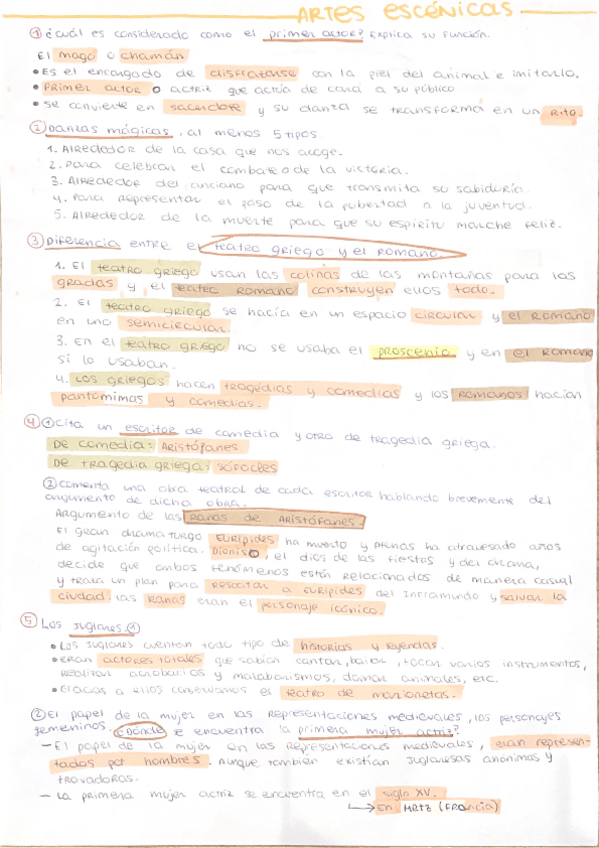 ARTES ESCÉNICAS
① ¿Cuál es considerado como el primer actor? Explica su función.
El mago o chamán
• Es el encargado de disfrazarse con la piel del animal e imitarlo.
• Primer actor o actriz que actúa de cara a su público
• Se convierte en sacerdote y su danza se transforma en un rito.
② Danzas mágicas, al menos 5 tipos
1. Alrededor de la casa que nos acoge.
2. Para celebrar el combate o de la victoria.
3. Alrededor del anciano para que transmita su sabiduría.
4. Para representar el paso de la pubertad a la juventud.
5. Alrededor de la muerte para que su espíritu marche feliz.
③ Diferencia entre el teatro griego y el romano.
1. El teatro griego usan las colinas de las montañas para las
gradas y el teatro romano construyen ellos todo.
2. El teatro griego se hacía en un espacio circular y el romano
en uno semicircular.
3. En el teatro griego no se usaba el proscenio y en el romano
si lo usaban.
4. Los griegos hacen tragedias y comedias y los romanos hacían
pantomimas y comedias.
④ ① Cita un escritor de comedia y otro de tragedia griega.
De comedia: Aristófanes
De tragedia griega: Sófocles
② Comenta una obra teatral de cada escritor hablando brevemente del
argumento de dicha obra.
Argumento de las Ranas de Aristófanes.
El gran dramaturgo Eurípides ha muerto y Atenas ha atravesado años
de agitación política. Dioniso, el dios de las fiestas y del drama,
decide que ambos fenómenos están relacionados de manera casual
y traza un plan para rescatar a Eurípides del Inframundo y salvar la
ciudad. Las Ranas eran el personaje icónico.
⑤ Los juglares ①
• Los juglares cuentan todo tipo de historias y leyendas.
• Eran actores totales que sabían cantar, bailar, tocar varios instrumentos,
realizar acrobacias y malabarismos, domar animales, etc.
• Gracias a ellos conservamos el teatro de marionetas.
② El papel de la mujer en las representaciones medievales, los personajes
femeninos. ¿Dónde se encuentra la primera mujer actriz?
– El papel de la mujer en las representaciones medievales, eran represen-
tados por hombres. Aunque también existían juglaresas anónimas y
trovadoras.
– La primera mujer actriz se encuentra en el siglo XV.
→ En Metz (Francia)